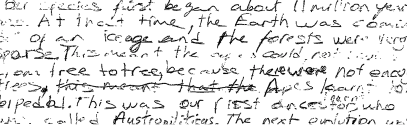 Our species first began about 11 million year
At that time, the Earth was comin
of an iceage and the forests were very
sparse. This meant the apes could not
from tree to tree, because therewere not enou
trees, this meant that the Apes learnt to
bipedal. This was our first ancestor who
called Australiticas. The next evolution